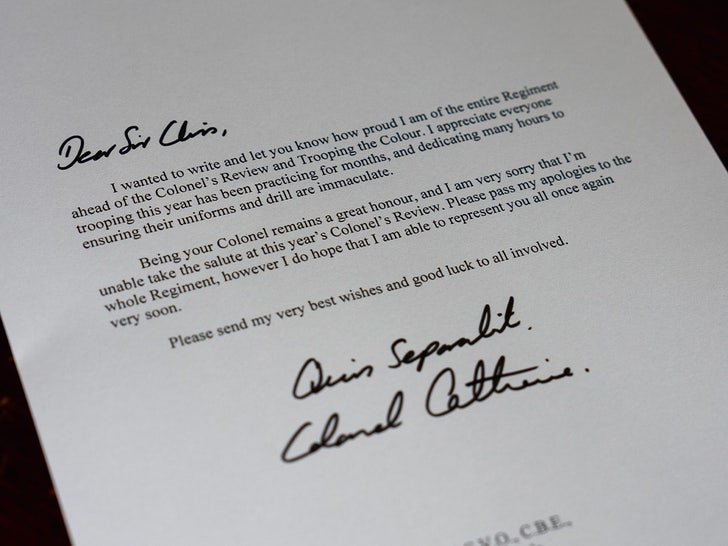 Dear Sir Chris,
I wanted to write and let you know how proud I am of the entire Regiment
ahead of the Colonel's Review and Trooping the Colour. I appreciate everyone
trooping this year has been practicing for months, and dedicating many hours to
ensuring their uniforms and drill are immaculate.
Being your Colonel remains a great honour, and I am very sorry that I'm
unable take the salute at this year's Colonel's Review. Please pass my apologies to the
whole Regiment, however I do hope that I am able to represent you all once again
very soon.
Please send my very best wishes and good luck to all involved.
Quis Separabit.
Colonel Catherine.
C.B.E.